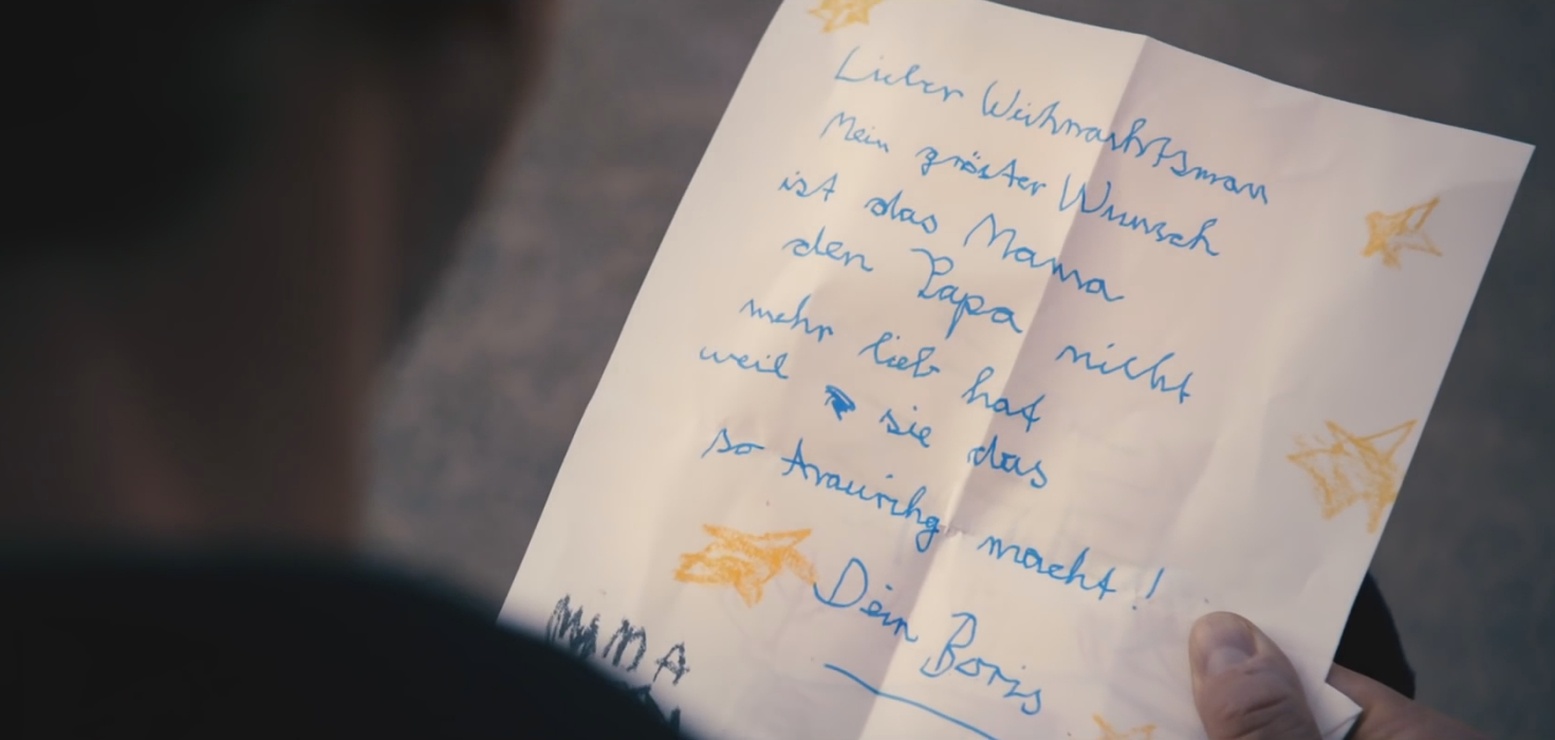 Lieber Weihnachtsman
Mein gröster Wunsch
ist das Mama
den Papa nicht
mehr lieb hat
weil sie das
so traurihg macht!
Dein Boris
MAMA